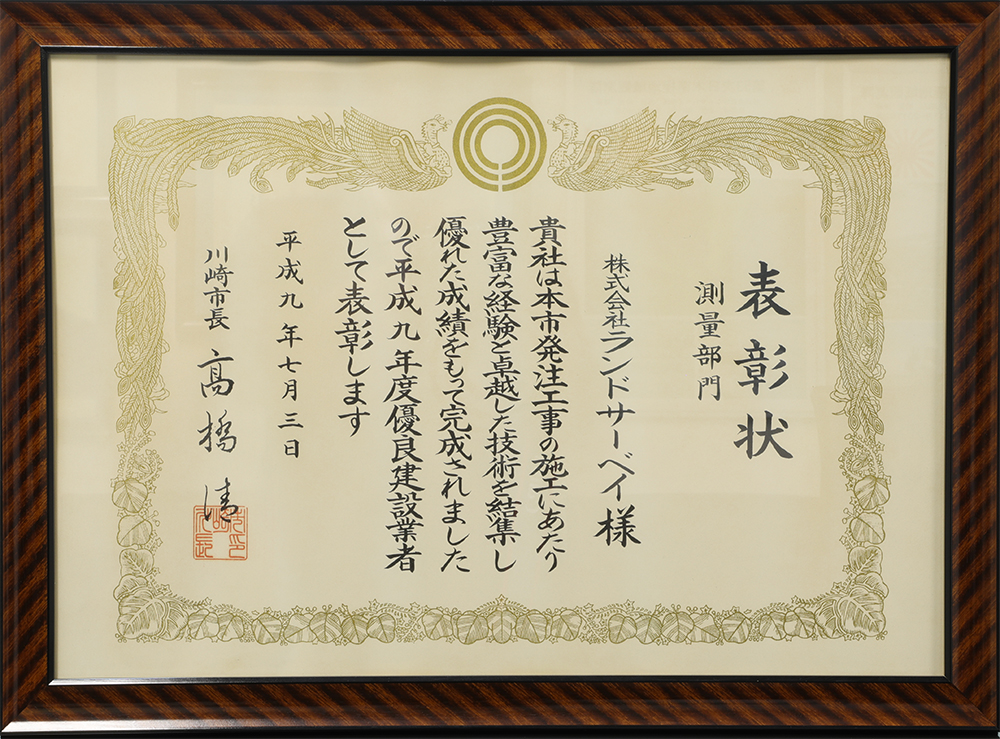 表彰状
測量部門
株式会社ランドサーベイ様
貴社は本市発注工事の施工にあたり
豊富な経験と卓越した技術を結集し
優れた成績をもって完成されました
ので平成九年度優良建設業者
として表彰します
平成九年七月三日
川崎市長 高橋清